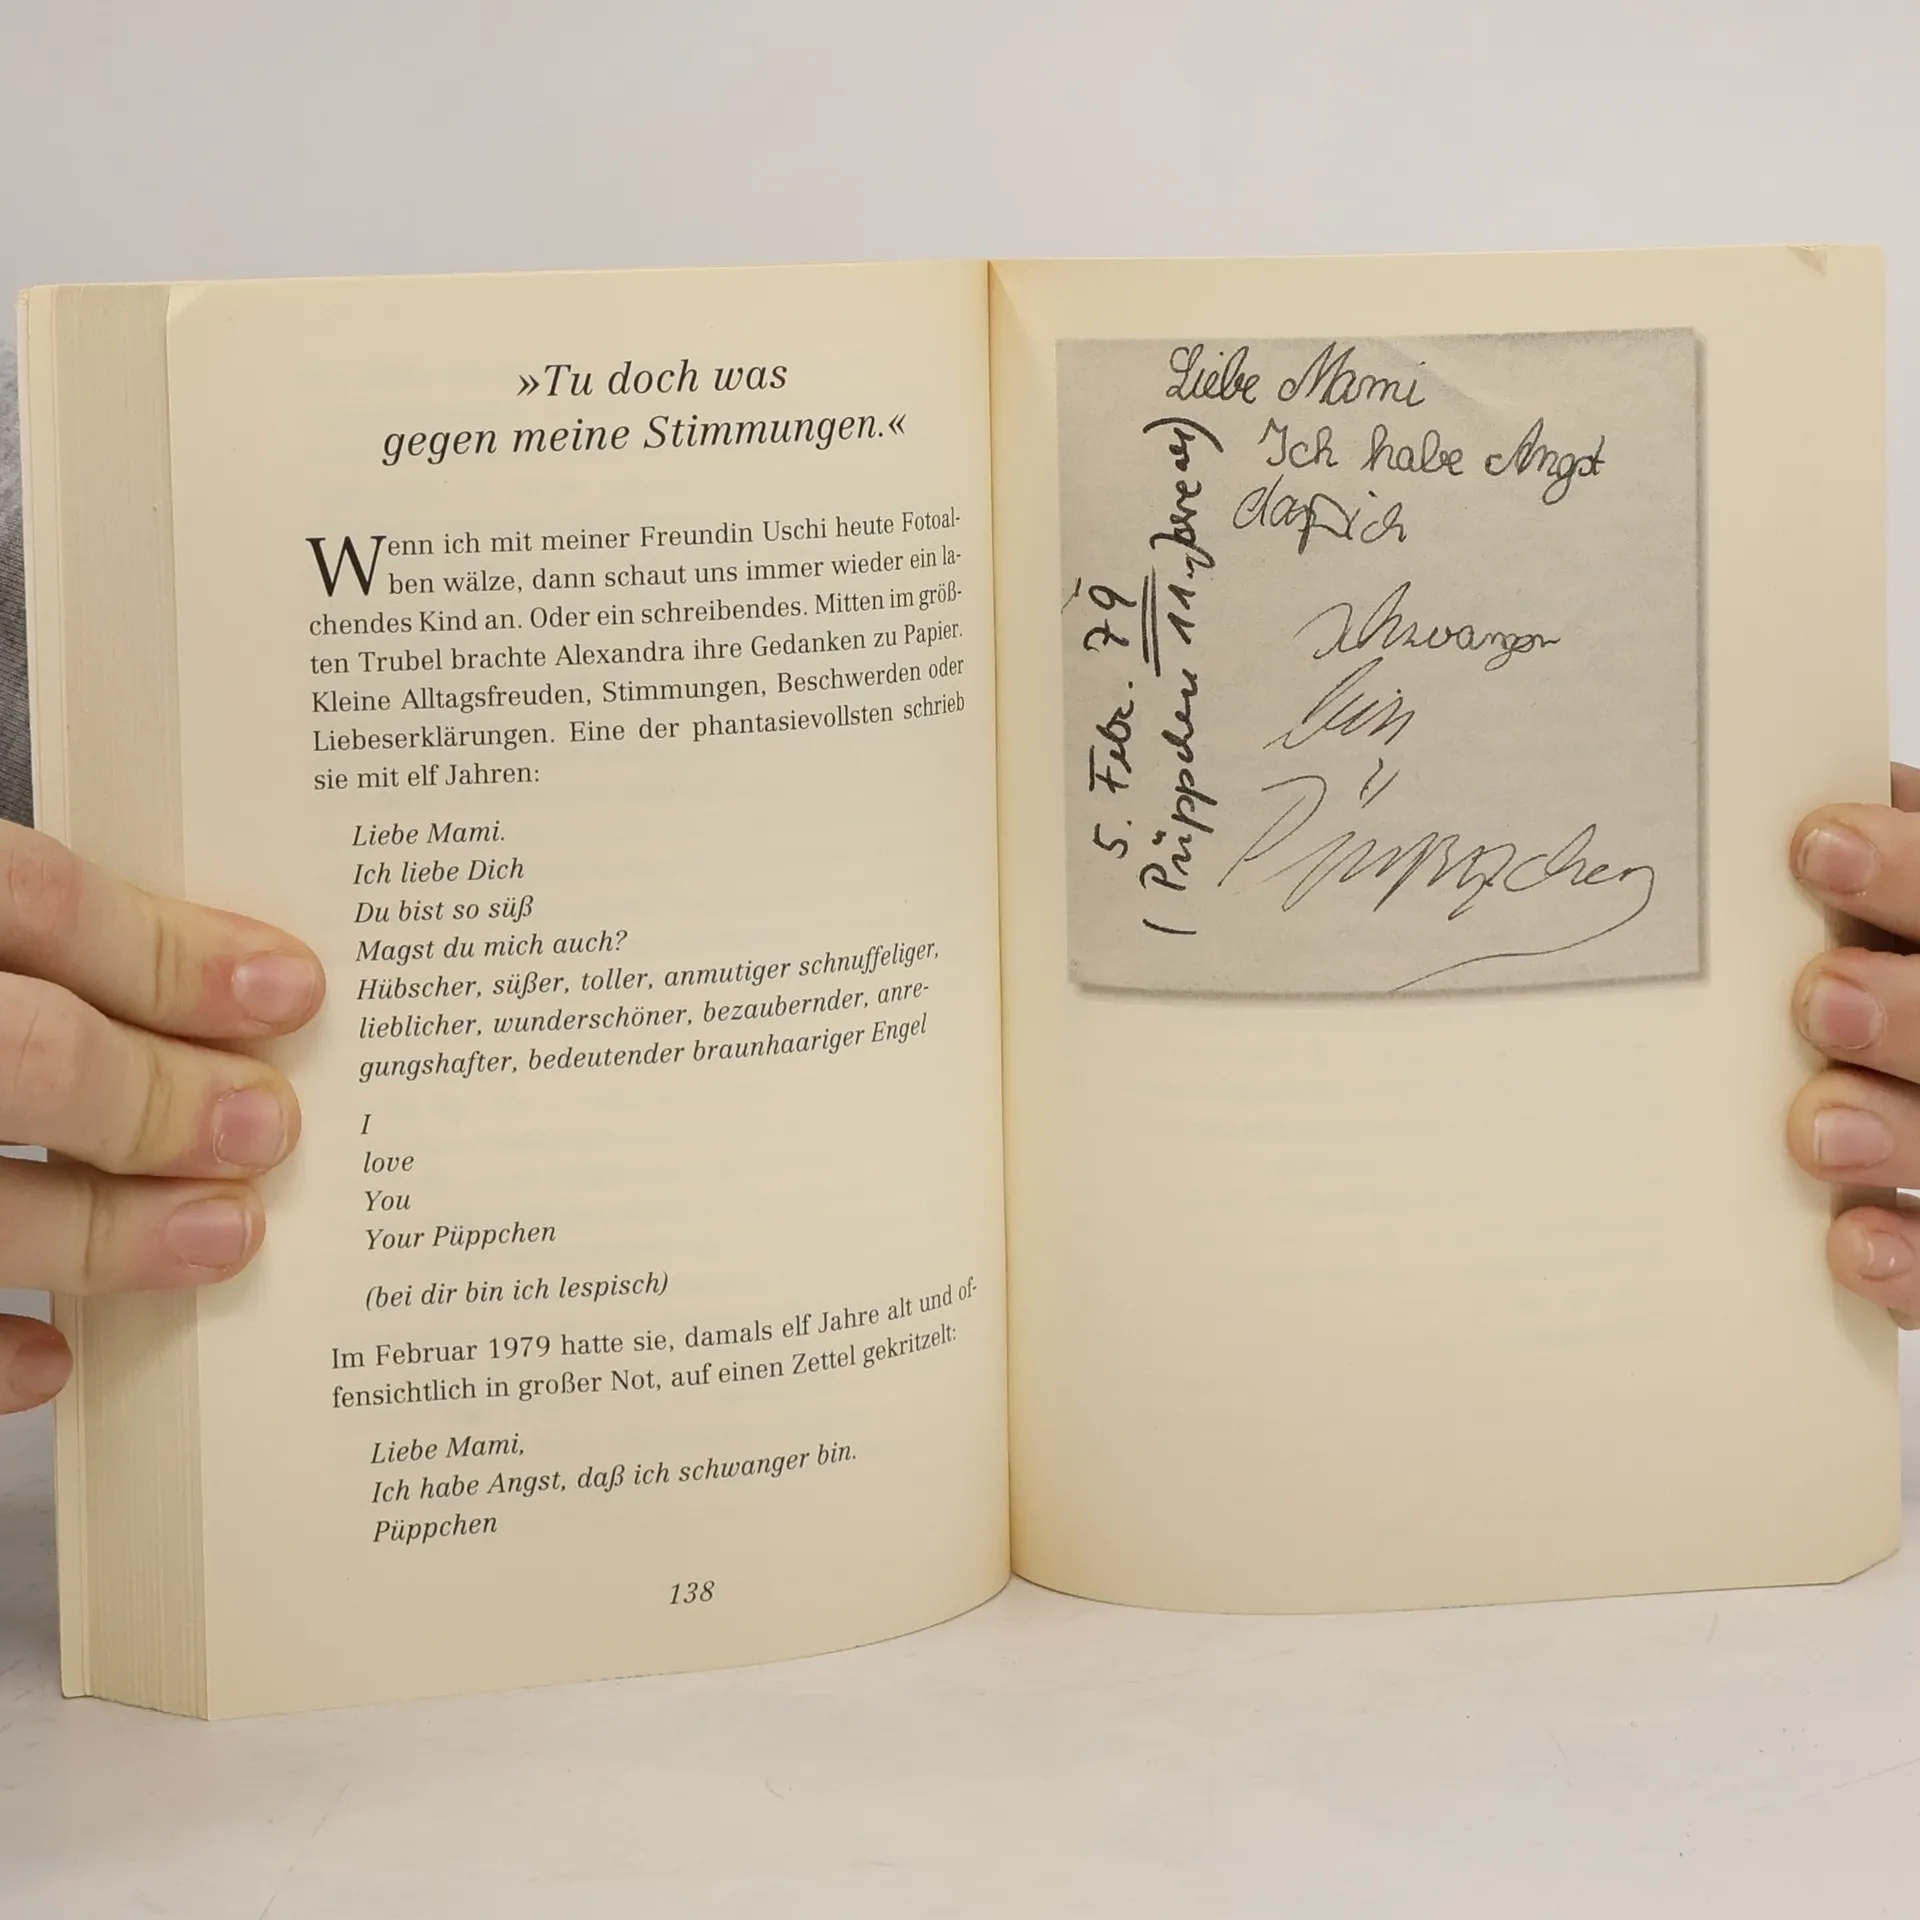 »Tu doch was
gegen meine Stimmungen.«
Wenn ich mit meiner Freundin Uschi heute Fotoal-
ben wälze, dann schaut uns immer wieder ein la-
chendes Kind an. Oder ein schreibendes. Mitten im größ-
ten Trubel brachte Alexandra ihre Gedanken zu Papier.
Kleine Alltagsfreuden, Stimmungen, Beschwerden oder
Liebeserklärungen. Eine der phantasievollsten schrieb
sie mit elf Jahren:
Liebe Mami.
Ich liebe Dich
Du bist so süß
Magst du mich auch?
Hübscher, süßer, toller, anmutiger schnuffeliger,
lieblicher, wunderschöner, bezaubernder, anre-
gungshafter, bedeutender braunhaariger Engel
I
love
You
Your Püppchen
(bei dir bin ich lespisch)
Im Februar 1979 hatte sie, damals elf Jahre alt und of-
fensichtlich in großer Not, auf einen Zettel gekritzelt:
Liebe Mami,
Ich habe Angst, daß ich schwanger bin.
Püppchen
138
Liebe Mami
Ich habe Angst
daß ich
schwanger
bin
Püppchen
5. Febr. 79
(Püppchen 11-jährig)